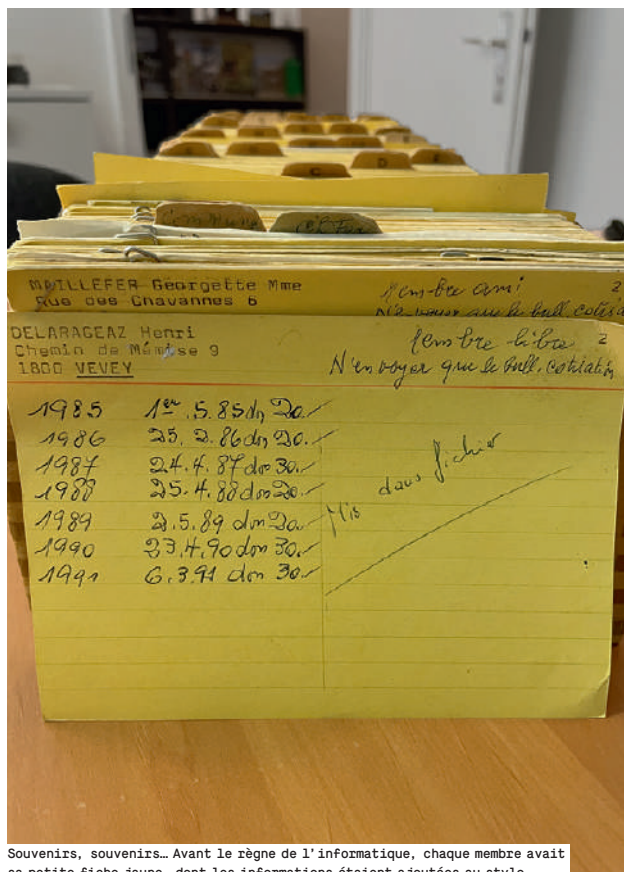 C D E
Chefs
MAILLEFER Georgette Mme
Rue des Chavannes 6
Membre ami 2
N'envoyer que le bull. cotisa
DELARAGEAZ Henri
Chemin de Mémise 9
1800 VEVEY
Membre libre 2
N'envoyer que le bull. cotisation
1985 1er.5.85 don 20.-
1986 25.2.86 don 20.-
1987 24.4.87 don 30.-
1988 25.4.88 don 20.-
1989 2.5.89 don 20.-
1990 23.4.90 don 30.-
1991 6.3.91 don 30.-
Mis dans fichier
Souvenirs, souvenirs… Avant le règne de l'informatique, chaque membre avait
sa petite fiche jaune, dont les informations étaient ajoutées au stylo